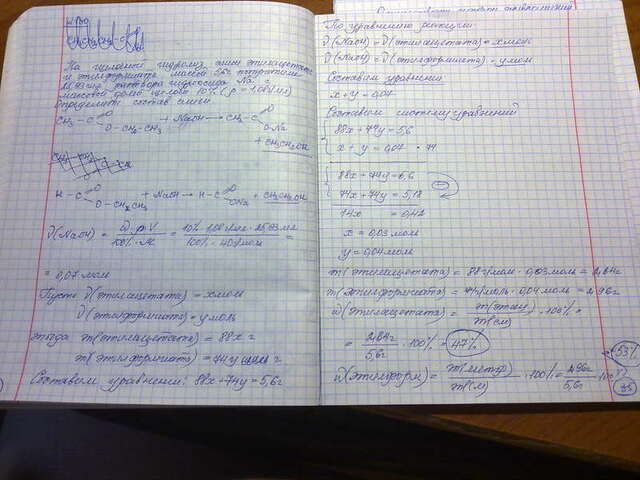 На щелочной гидролиз смеси этилацетата
и этилформиата массой 5,6г потратили
25,93мл раствора гидроксида Na с
массовой долей щелочи 10% (ρ = 1,08г/мл)
Определите состав смеси.
CH₃ - C O O-CH₂-CH₃ + NaOH → CH₃ - C O O-Na
+ CH₃CH₂OH
H - C O O-CH₂CH₃ + NaOH → H - C O ONa + CH₃CH₂OH
ν(NaOH) = ω·ρ·V / 100%·M = 10%·1,08г/мл·25,93мл / 100%·40г/моль =
= 0,07 моль
Пусть ν(этилацетата) = x моль
ν(этилформиата) = y моль
тогда m(этилацетата) = 88x г
m(этилформиата) = 74y г
Составим уравнение: 88x + 74y = 5,6г
По уравнению реакции:
ν(NaOH) = ν(этилацетата) = x моль
ν(NaOH) = ν(этилформиата) = y моль
Составим уравнение
x + y = 0,07
Составим систему уравнений
88x + 74y = 5,6
x + y = 0,07 · 74
88x + 74y = 5,6
74x + 74y = 5,18
14x = 0,42
x = 0,03 моль
y = 0,04 моль
m(этилацетата) = 88г/моль · 0,03 моль = 2,64г
m(этилформиата) = 74г/моль · 0,04 моль = 2,96г
ω(этилацетата) = m(этац) / m(см) · 100% =
= 2,64г / 5,6г · 100% = 47%
= 53%
ω(этилформ) = / m(см) · 100% = 2,96г / 5,6г · 100%